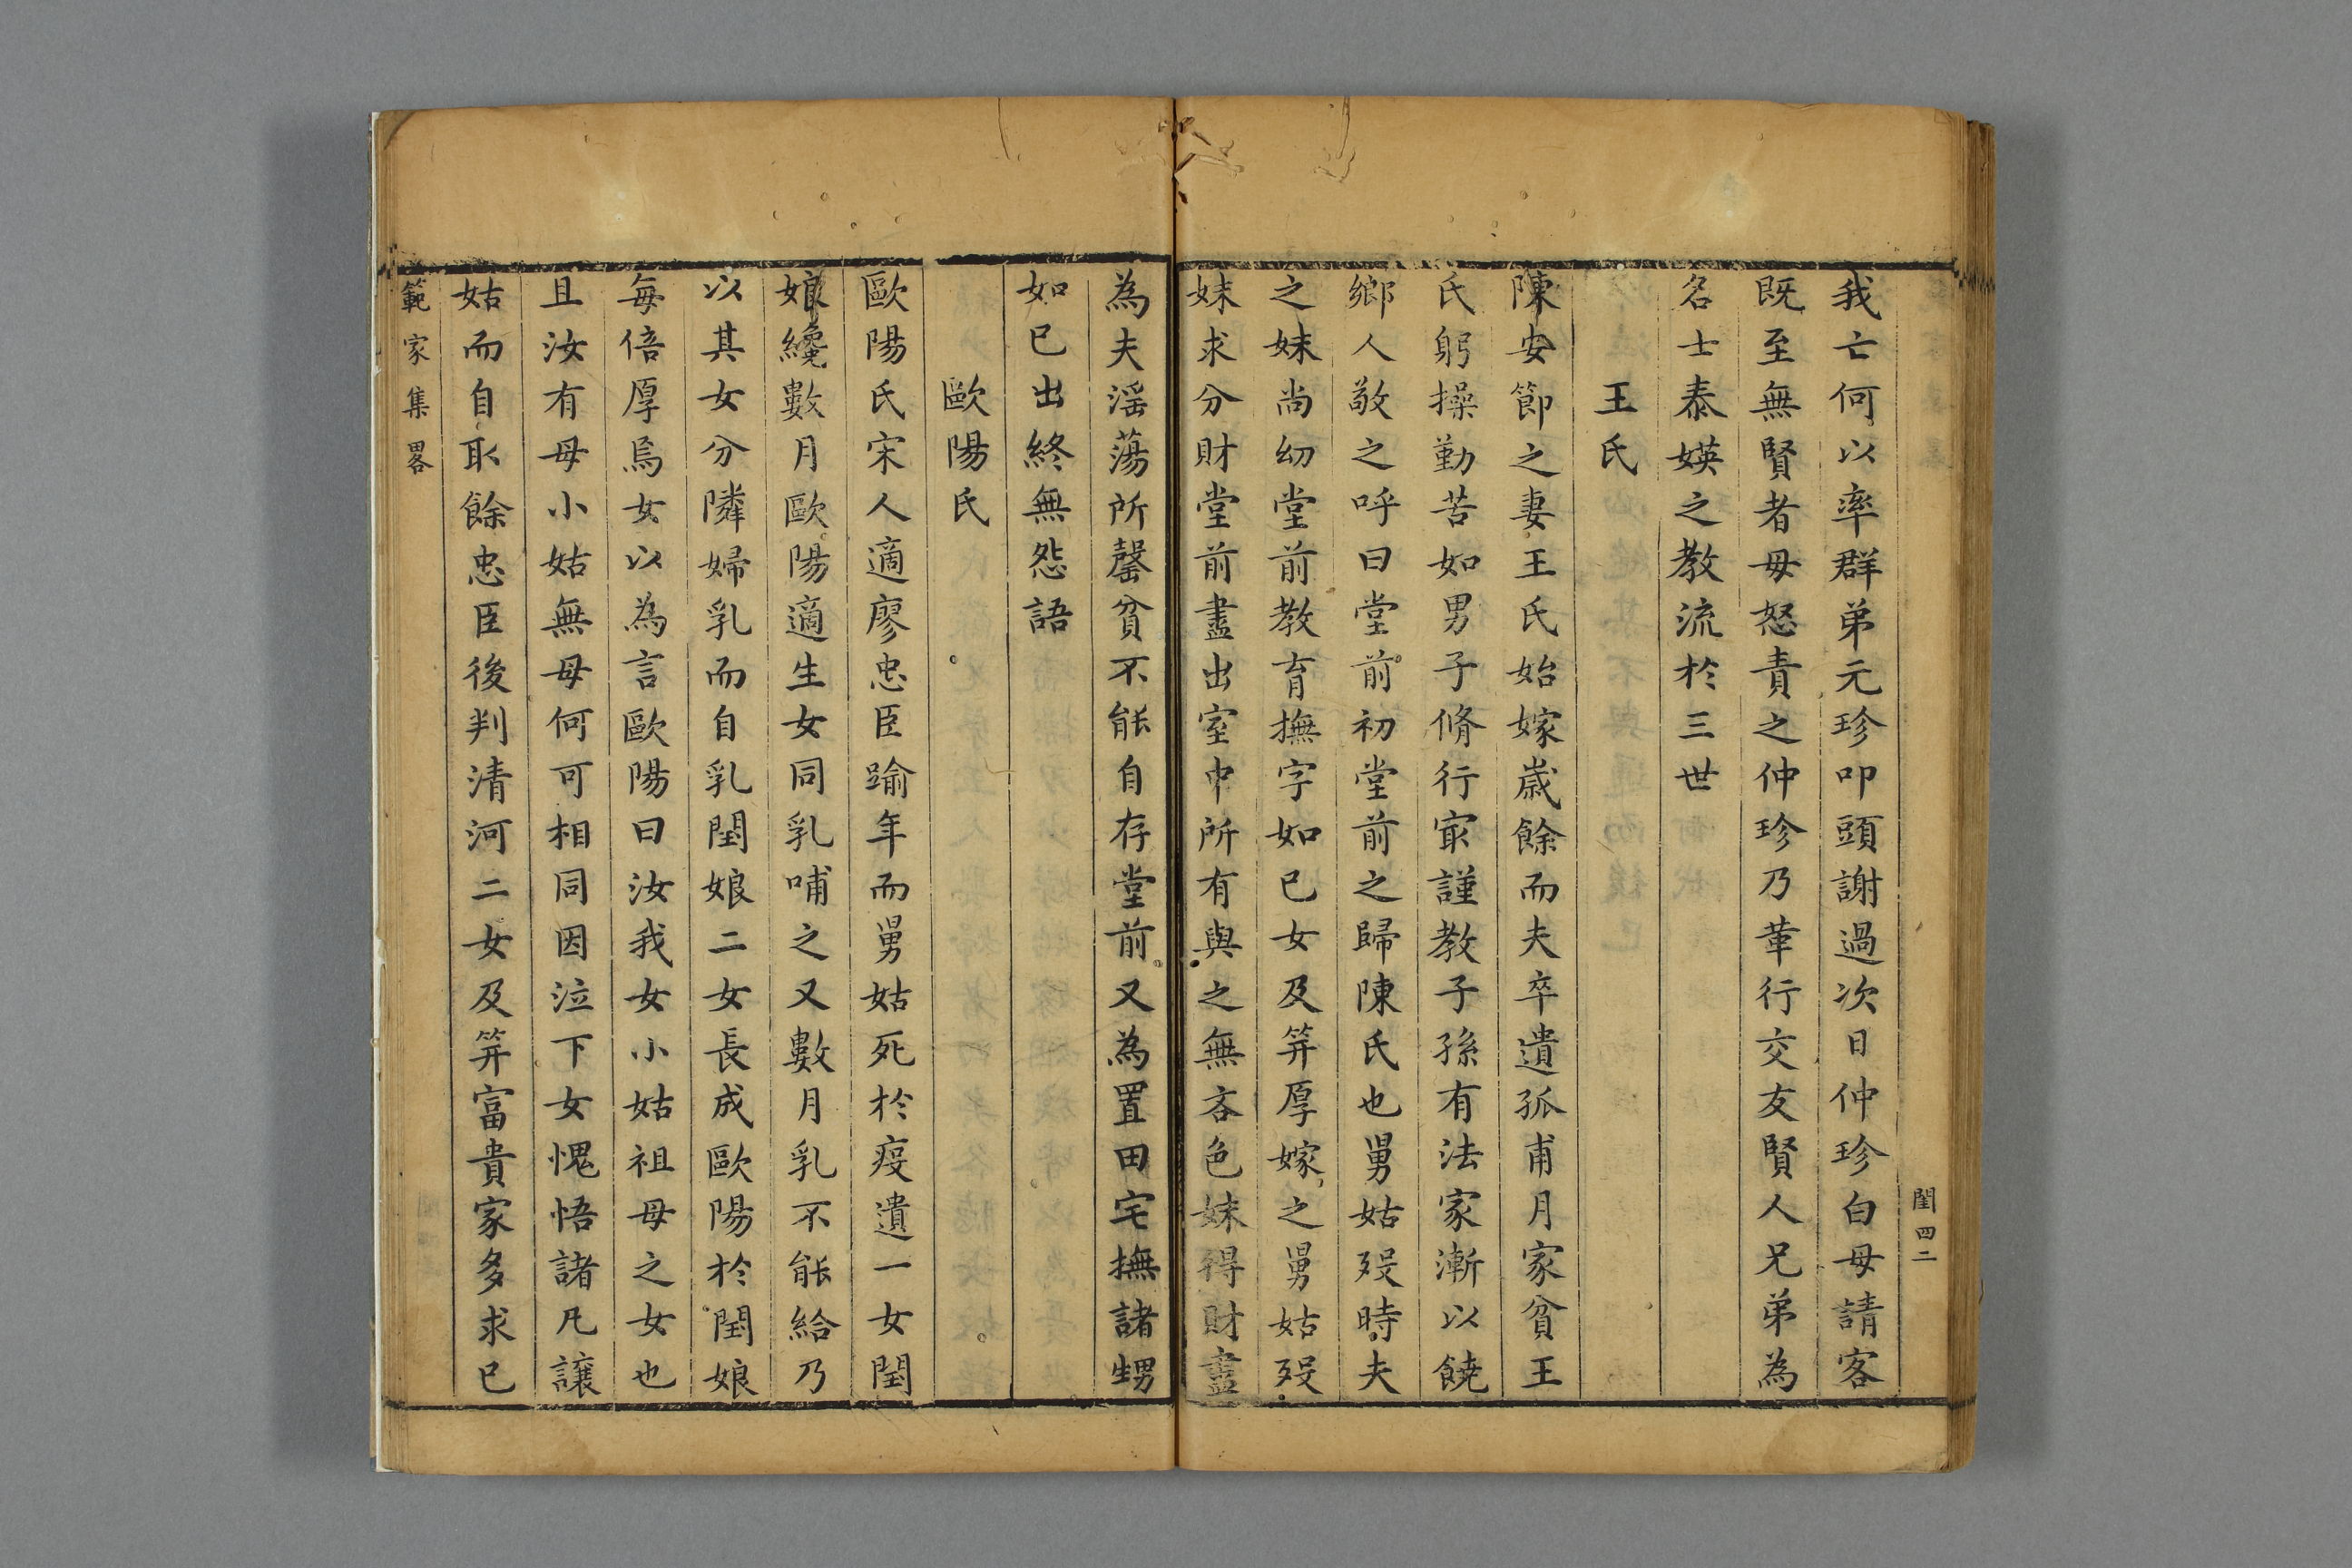 閨四二
我亡何以率群弟元珍叩頭謝過次日仲珍白母請客
既至無賢者母怒責之仲珍乃革行交友賢人兄弟為
名士泰媖之教流於三世
王氏
陳安節之妻王氏始嫁歲餘而夫卒遺孤甫月家貧王
氏躬操勤苦如男子脩行寔謹教子孫有法家漸以饒
鄉人敬之呼曰堂前初堂前之歸陳氏也舅姑歿時夫
之妹尚幼堂前教育撫字如已女及笄厚嫁之舅姑歿
妹求分財堂前盡出室中所有與之無吝色妹得財盡
為夫滛蕩所罄貧不能自存堂前又為置田宅撫諸甥
如已出終無怨語
歐陽氏
歐陽氏宋人適廖忠臣踰年而舅姑死於疫遺一女閏
娘纔數月歐陽適生女同乳哺之又數月乳不能給乃
以其女分隣婦乳而自乳閏娘二女長成歐陽於閏娘
每倍厚焉女以為言歐陽曰汝我女小姑祖母之女也
且汝有母小姑無母何可相同因泣下女愧悟諸凡讓
姑而自取餘忠臣後判清河二女及笄富貴家多求已
範家集畧